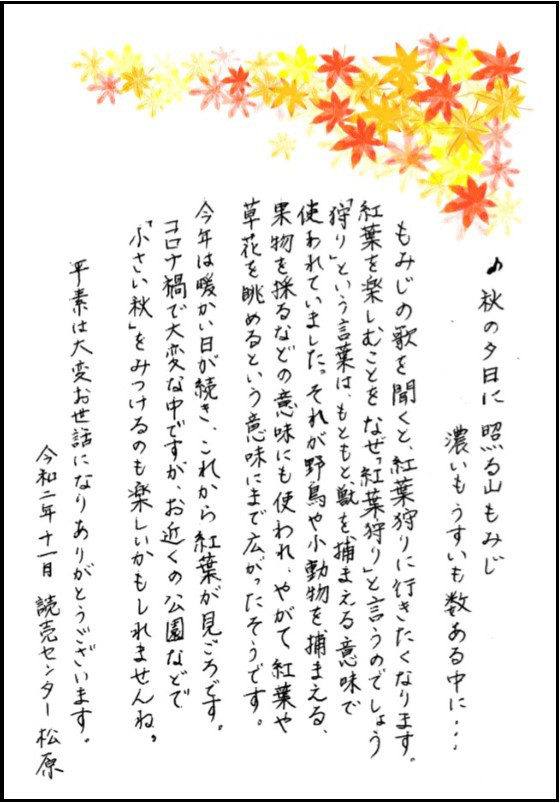 ♪秋の夕日に 照る山もみじ
濃いもうすいも 数ある中に・・・
もみじの歌を聞くと、紅葉狩りに行きたくなります。
紅葉を楽しむことを なぜ「紅葉狩り」と言うのでしょう
「狩り」という言葉は、もともと獣を捕まえる意味で
使われていました。それが野鳥や小動物を捕まえる、
果物を採るなどの意味にも使われ、やがて 紅葉や
草花を眺めるという意味にまで広がったそうです。
今年は暖かい日が続き、これから紅葉が見ごろです。
コロナ禍で大変な中ですが、お近くの公園などで
「小さい秋」をみつけるのも楽しいかもしれませんね。
平素は大変お世話になりありがとうございます。
令和二年十一月 読売センター松原